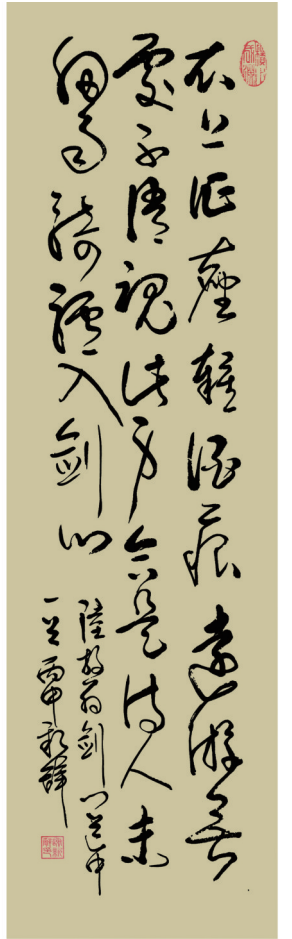 衣上征塵雜酒痕遠遊無
處不消魂此身合是詩人未
細雨騎驢入劍門
陸放翁劍門道中
一首丙申